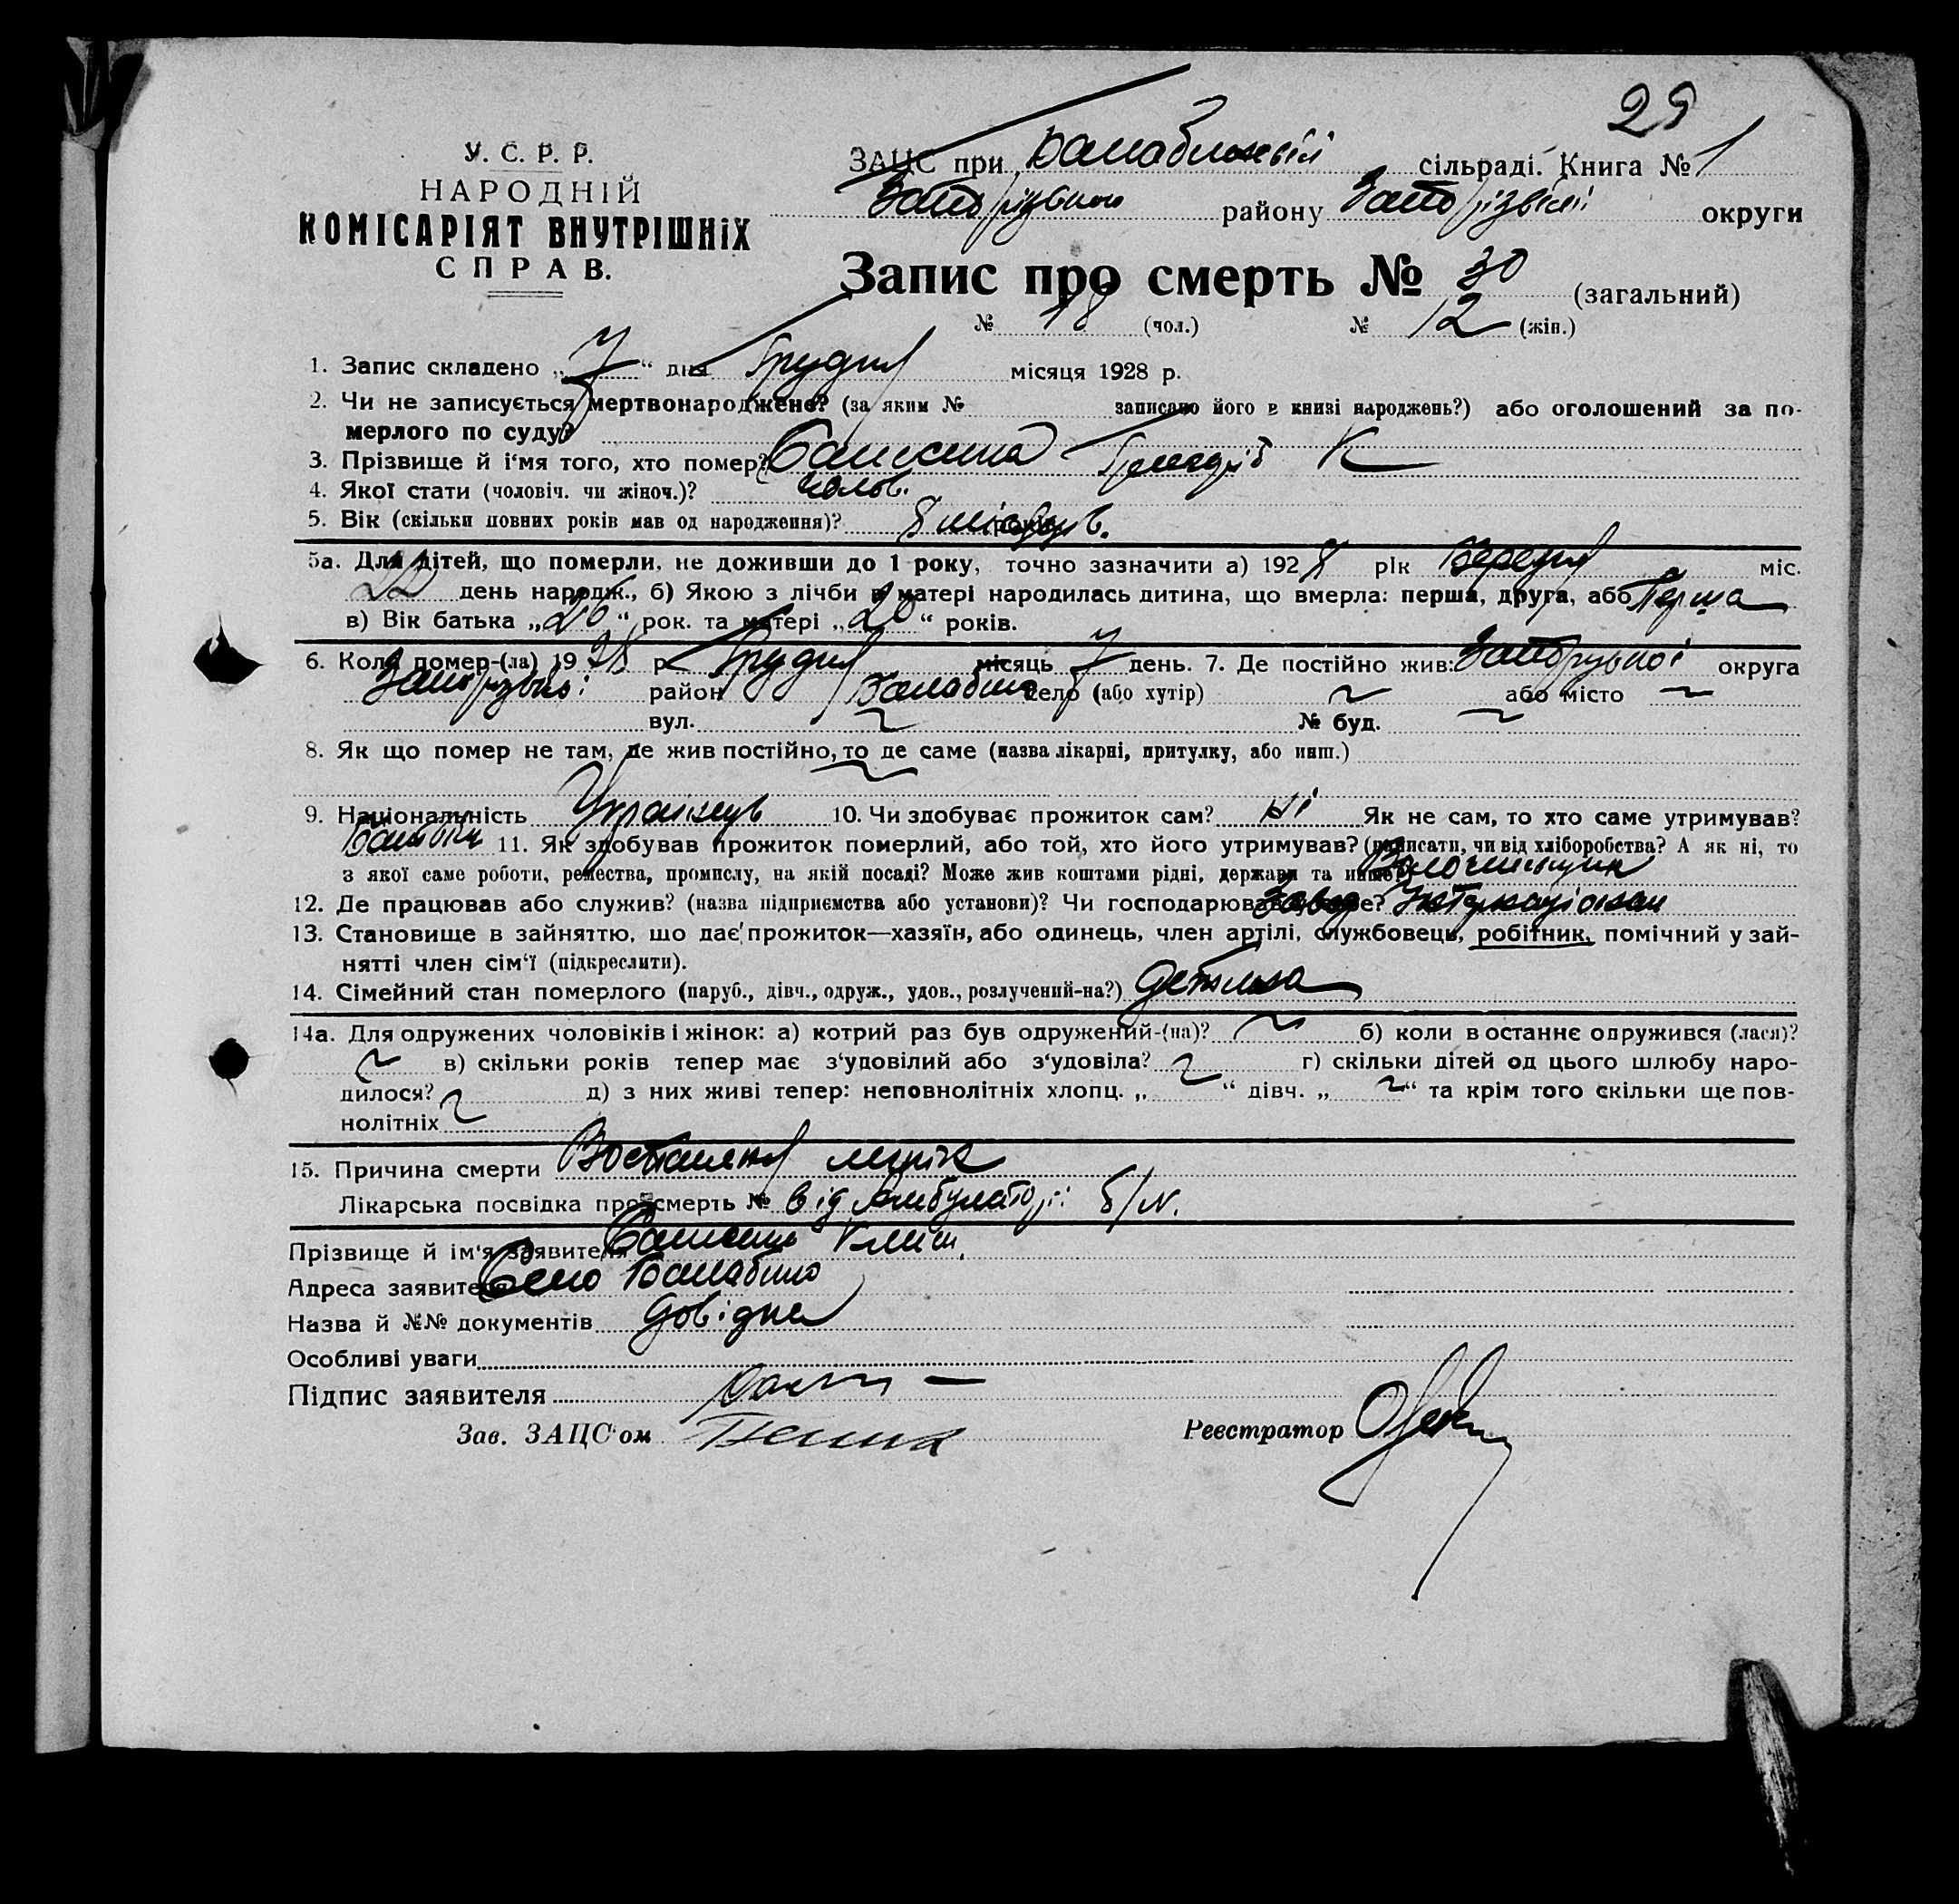 29
У. С. Р. Р.
НАРОДНІЙ
КОМІСАРІЯТ ВНУТРІШНІХ
СПРАВ.
ЗАЦС при Балабинській сільраді. Книга № 1
Запорізького району Запорізької округи
Запис про смерть № 30 (загальний)
№ 18 (чол.) № 12 (жін.)
1. Запис складено „7“ дня Грудня місяця 1928 р.
2. Чи не записується мертвонароджене? (за яким № записано його в книзі народжень?) або оголошений за по-
мерлого по суду?
3. Прізвище й і'мя того, хто помер? К
4. Якої стати (чоловіч. чи жіноч.)? чолов.
5. Вік (скільки повних років мав од народження)? 8 місяців.
5а. Для дітей, що померли, не доживши до 1 року, точно зазначити а) 1928 рік міс.
22 день народж., б) Якою з лічби в матері народилась дитина, що вмерла: перша, друга, або Перша
в) Вік батька „26“ рок. та матері „20“ років.
6. Коли помер-(ла) 1928 р. Грудня місяць 7 день. 7. Де постійно жив: Запорізької округа
Запорізької район Балабино село (або хутір) ~ або місто ~
вул. ~ № буд. ~
8. Як що помер не там, де жив постійно, то де саме (назва лікарні, притулку, або инш.)
~
9. Національність Українець 10. Чи здобуває прожиток сам? Ні Як не сам, то хто саме утримував?
Батьки 11. Як здобував прожиток померлий, або той, хто його утримував? (написати, чи від хліборобства? А як ні, то
з якої саме роботи, ремества, промислу, на якій посаді? Може жив коштами рідні, держави та инше?)
12. Де працював або служив? (назва підприємства або установи)? Чи господарював у себе? Завод Інтернаціонал
13. Становище в зайняттю, що дає прожиток—хазяїн, або одинець, член артілі, службовець, робітник, помічний у зай-
нятті член сім'ї (підкреслити).
14. Сімейний стан померлого (паруб., дівч., одруж., удов., розлучений-на?) Дитина
14а. Для одружених чоловіків і жінок: а) котрий раз був одружений-(на)? ~ б) коли в останнє одружився (лася)?
~ в) скільки років тепер має з'удовілий або з'удовіла? ~ г) скільки дітей од цього шлюбу наро-
дилося? ~ д) з них живі тепер: неповнолітніх хлопц. „ “ дівч. „~“ та крім того скільки ще пов-
нолітніх ~
15. Причина смерти
Лікарська посвідка про смерть № від Амбулаторії б/N.
Прізвище й ім'я заявителя Клим.
Адреса заявителя Село Балабино
Назва й №№ документів Довідка
Особливі уваги
Підпис заявителя
Зав. ЗАЦС'ом Реєстратор